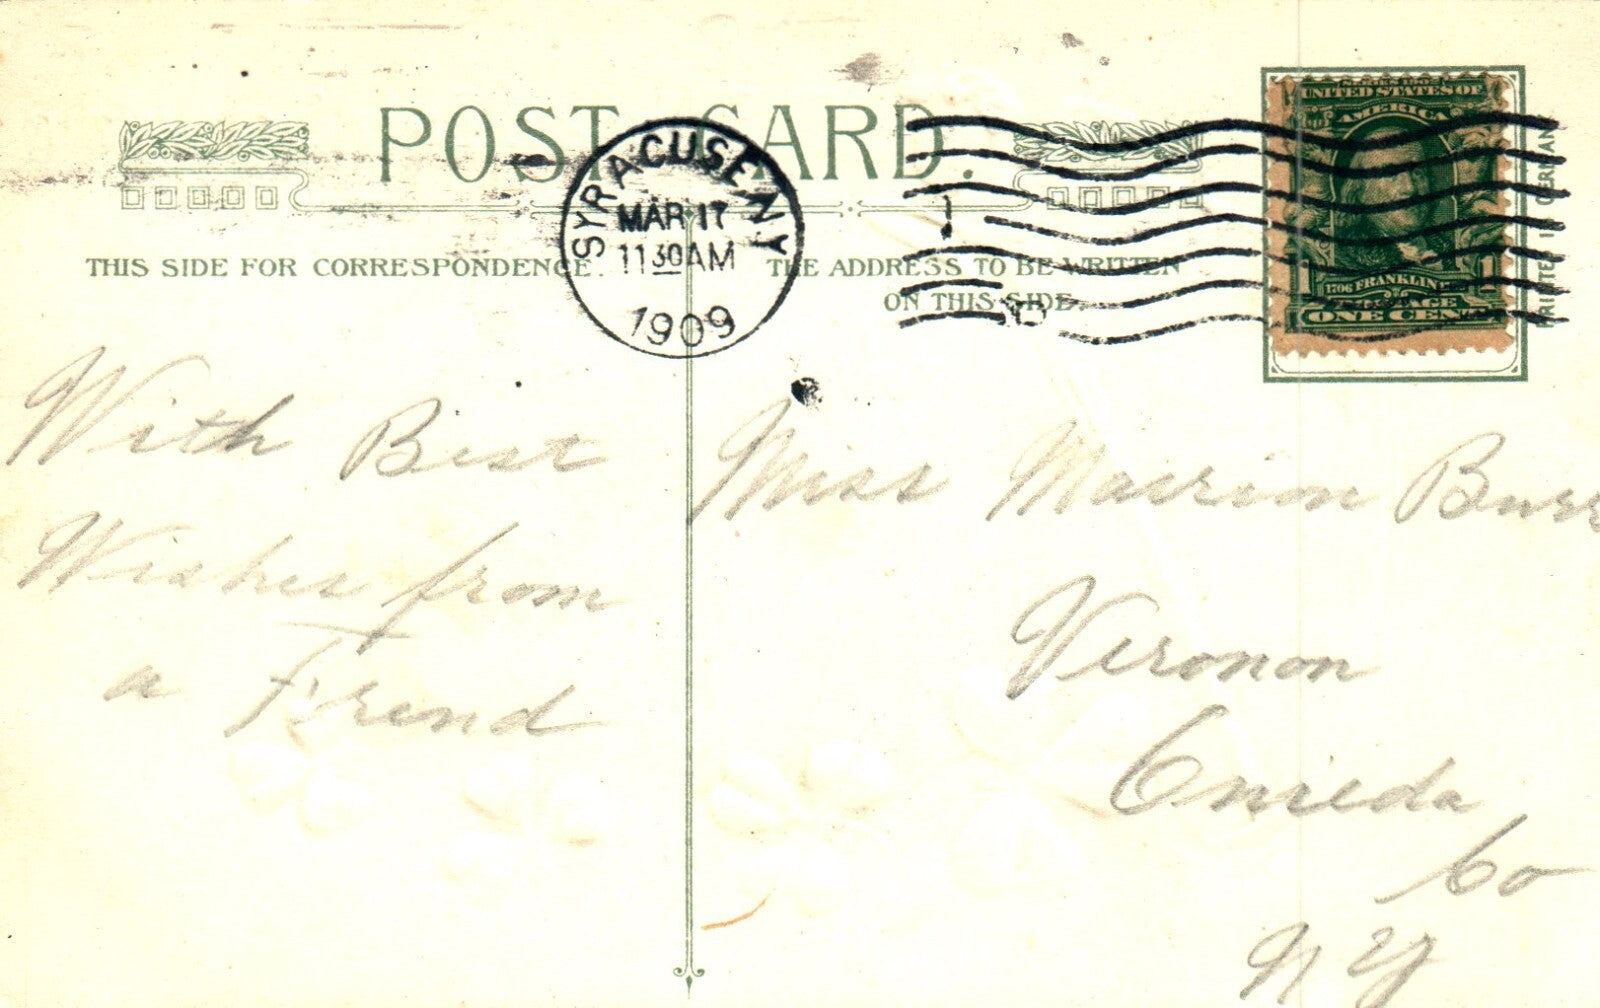 POST CARD.
SYRACUSE N.Y.
MAR 17
11 30 AM
1909
UNITED STATES OF
AMERICA
1706 FRANKLIN
POSTAGE
ONE CENT
1
PRINTED IN GERMANY
THIS SIDE FOR CORRESPONDENCE.
THE ADDRESS TO BE WRITTEN
ON THIS SIDE.
With Best
Wishes from
a Frend
Miss Marrion Burr
Vernon
Oneida
Co
N Y